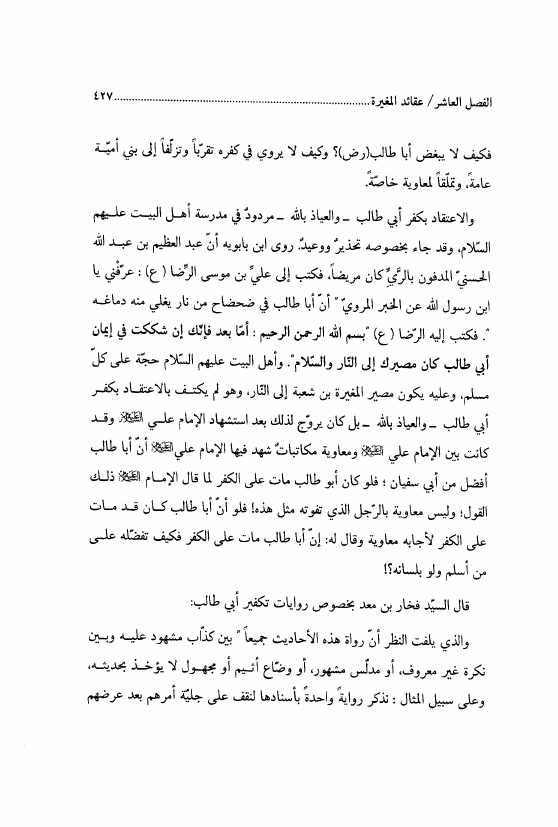 الفصل العاشر/ عقائد المغيرة ..............................................................٤٢٧
فكيف لا يبغض أبا طالب(رض)؟ وكيف لا يروي في كفره تقرّباً وتزلّفاً إلى بني أميّـة
عامةً، وتملّقاً لمعاوية خاصّةً.
والاعتقاد بكفر أبي طالب _ والعياذ بالله _ مردودٌ في مدرسة أهـل البيـت علـيهم
السّلام، وقد جاء بخصوصه تحذيرٌ ووعيدٌ. روى ابن بابويه أنّ عبد العظيم بن عبـد الله
الحسنيّ المدفون بالرَّيِّ كان مريضاً، فكتب إلى عليِّ بن موسى الرِّضا ( ع) : عرّفْني يا
ابن رسول الله عن الخبر المرويّ " أنّ أبا طالب في ضحضاح من نار يغلي منه دماغـه
". فكتب إليه الرّضا ( ع) "بسم الله الرحمن الرحيم : أمّا بعد فإنّك إن شككت في إيمان
أبي طالب كان مصيرك إلى النّار والسّلام". وأهل البيت عليهم السّلام حجّة على كلّ
مسلم، وعليه يكون مصير المغيرة بن شعبة إلى النّار، وهو لم يكتـف بالاعتقـاد بكفـر
أبي طالب _ والعياذ بالله _ بل كان يروّج لذلك بعد استشهاد الإمام علـي وقـد
كانت بين الإمام علي ومعاوية مكاتباتٌ شهد فيها الإمام علي أنّ أبا طالب
أفضل من أبي سفيان ؛ فلو كان أبو طالب مات على الكفر لما قال الإمـام ذلـك
القول؛ وليس معاوية بالرّجل الذي تفوته مثل هذه! فلو أنّ أبا طالب كـان قـد مـات
على الكفر لأجابه معاوية وقال له: إنّ أبا طالب مات على الكفر فكيف تفضّله علـى
من أسلم ولو بلسانه؟!
قال السيّد فخار بن معد بخصوص روايات تكفير أبي طالب:
والذي يلفت النظر أنّ رواة هذه الأحاديث جميعاً " بين كذّاب مشهود عليـه وبـين
نكرة غير معروف، أو مدلّس مشهور، أو وضّاع أثـيم أو مجهـول لا يؤخـذ بحديثـه،
وعلى سبيل المثال : نذكر روايةً واحدةً بأسنادها لنقف على جليّة أمرهم بعد عرضهم